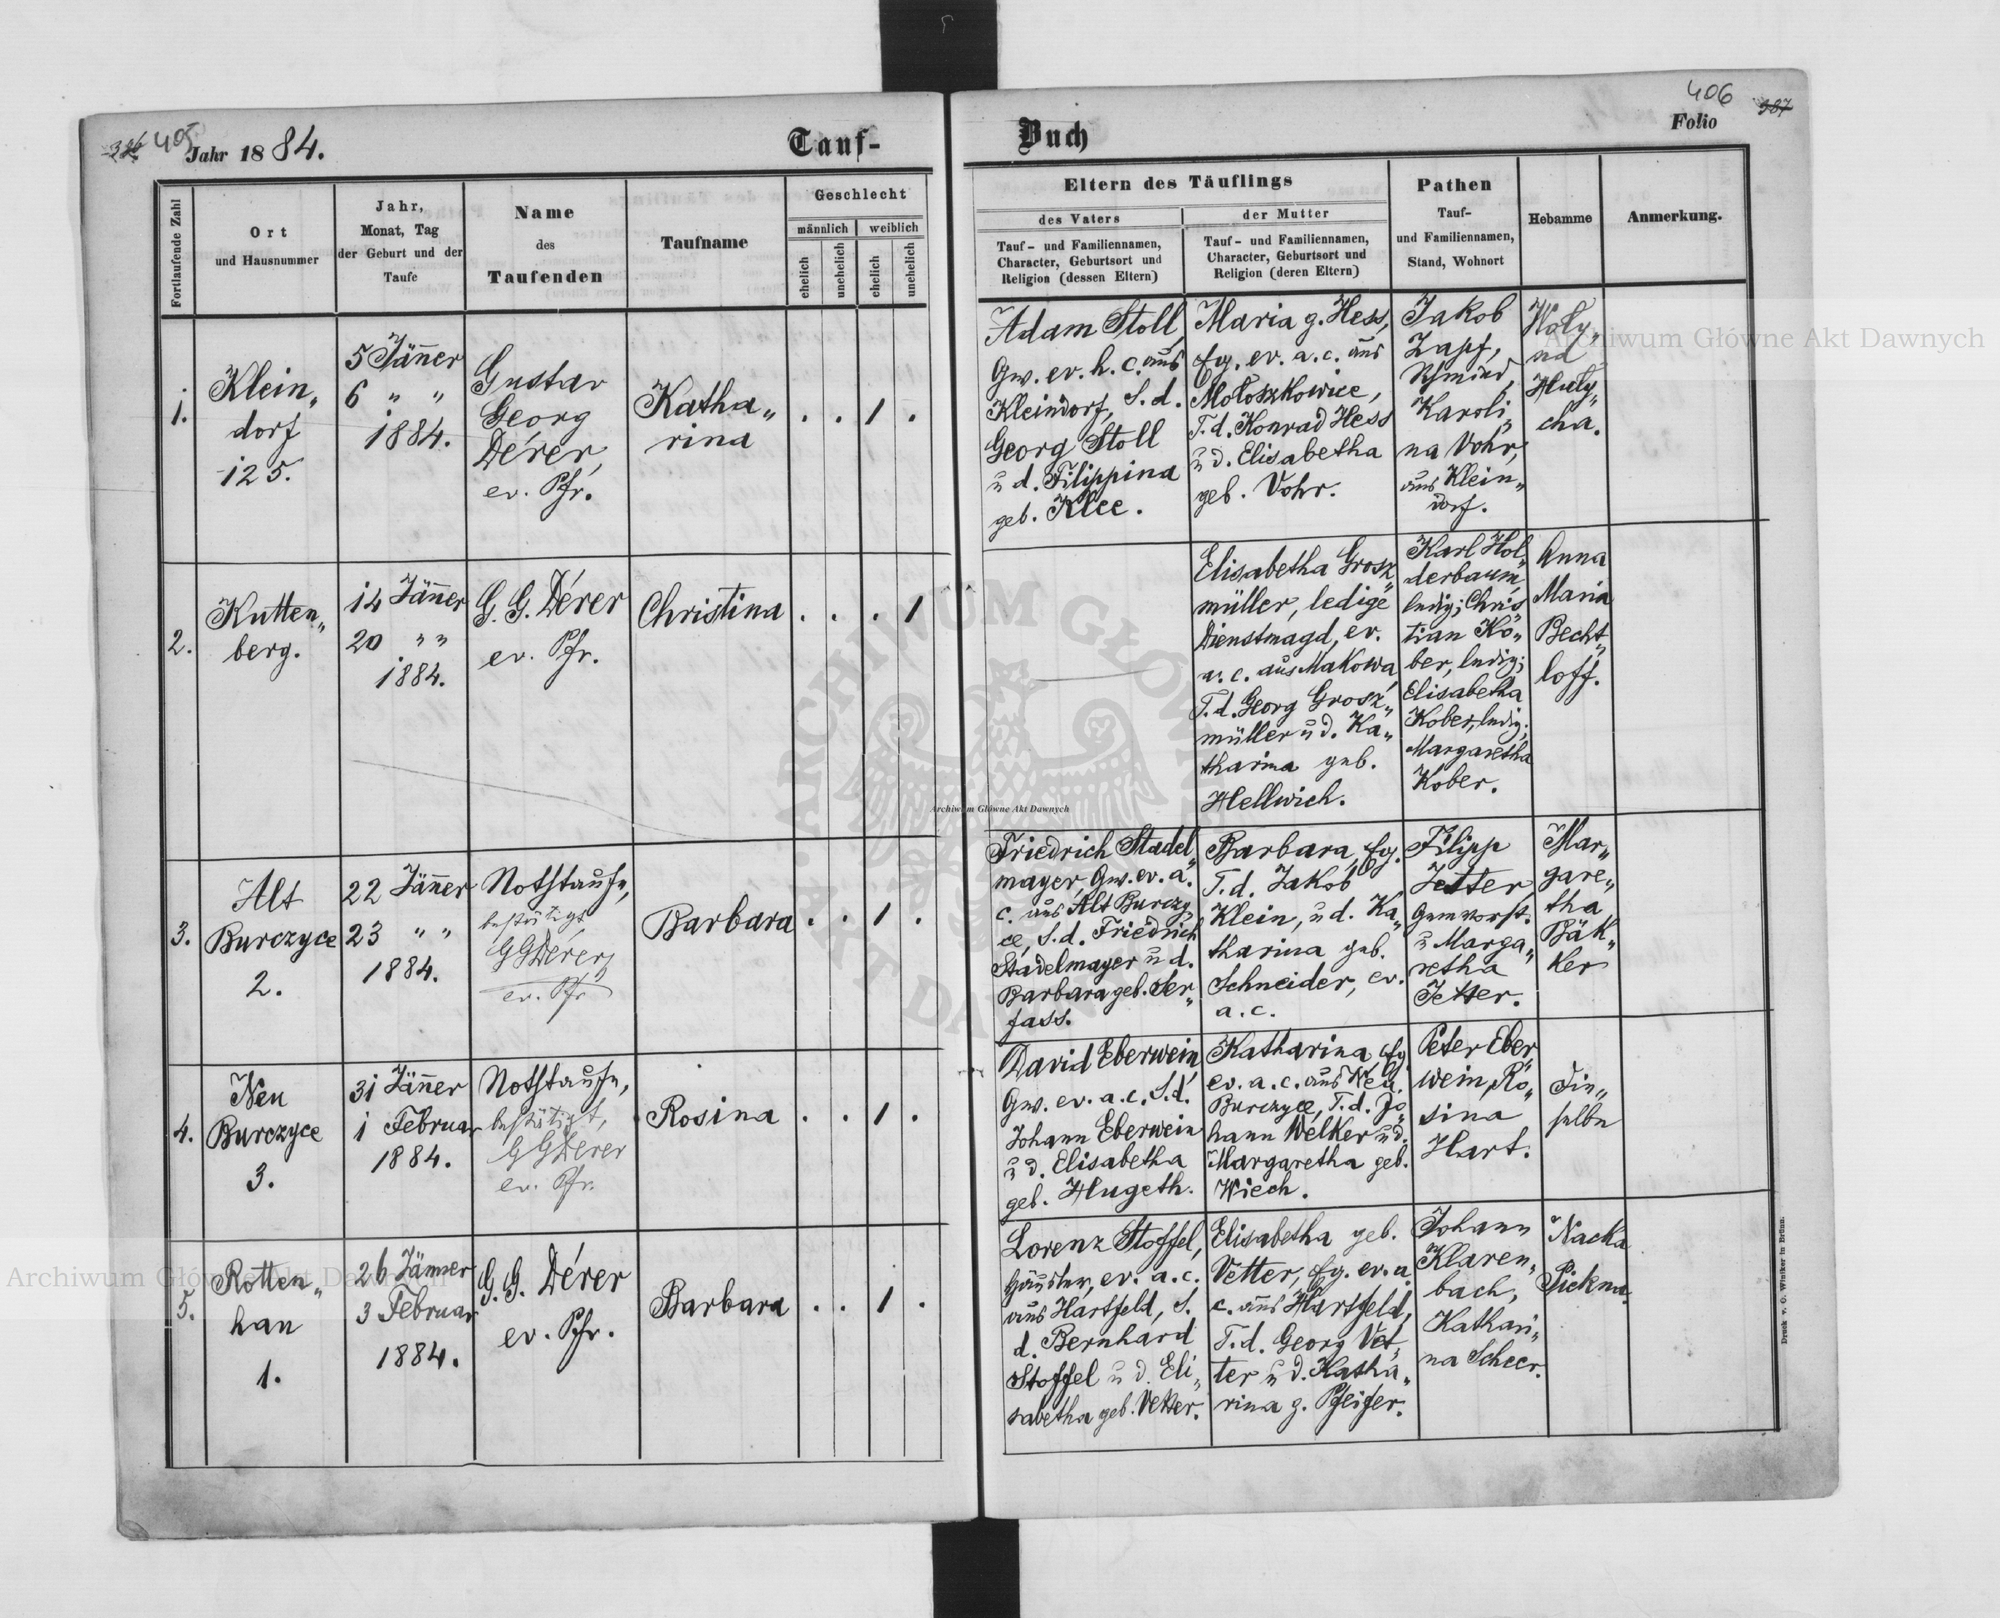 386 405
Jahr 1884.
Tauf-
Buch
406
387
Folio
Fortlaufende Zahl
Ort
und Hausnummer
Jahr,
Monat, Tag
der Geburt und der
Taufe
Name
des
Taufenden
Taufname
Geschlecht
männlich
weiblich
ehelich
unehelich
ehelich
unehelich
Eltern des Täuflings
des Vaters
Tauf- und Familiennamen,
Character, Geburtsort und
Religion (dessen Eltern)
der Mutter
Tauf- und Familiennamen,
Character, Geburtsort und
Religion (deren Eltern)
Pathen
Tauf-
und Familiennamen,
Stand, Wohnort
Hebamme
Anmerkung.
1.
Klein„
dorf
125.
5 Jänner
6 „ „
1884.
Gustav
Georg
Dérer,
ev. Pfr.
Katha„
rina
. . 1 .
Adam Stoll,
Gw. ev. h. c. aus
Kleindorf, S. d.
Georg Stoll
u d. Filippina
geb. Klee.
Maria g. Hess,
Eg. ev. a. c. aus
Mołoszkowice,
T. d. Konrad Hess
u d. Elisabetha
geb. Vohr.
Jakob
Zapf,
Schmied,
Karoli„
na Vohr,
aus Klein„
dorf.
Huly„
cha.
2.
Kutten„
berg.
14 Jänner
20 „ „
1884.
G. G. Dérer
ev. Pfr.
Christina
. . . 1
Elisabetha Grosz„
müller, ledige
Dienstmagd, ev.
a. c. aus Makowa,
T. d. Georg Grosz„
müller u d. Ka„
tharina geb.
Hellwich.
Karl Hol„
derbaum,
ledig; Chris„
tian Ko„
ber, ledig;
Elisabetha
Kober, ledig;
Margaretha
Kober.
Anna
Maria
Becht„
loff.
3.
Alt
Burczyce
2.
22 Jänner
23 „ „
1884.
Nothtaufe,
bestätigt
GGDérer,
ev. Pfr
Barbara
. . 1 .
Friedrich Stadel„
mayer, Gw. ev. a.
c. aus Alt Burczy„
ce, S. d. Friedrich
Stadelmayer u d.
Barbara geb. Ser„
fass.
Barbara, Eg.
T. d. Jakob
Klein, u d. Ka„
tharina geb.
Schneider, ev.
a. c.
Filipp
Jetter
Gemvorst.
u Marga„
retha
Jetter.
Mar„
gare„
tha
Bäk„
ker
4.
Neu
Burczyce
3.
31 Jänner
1 Februar
1884.
Nothtaufe,
bestätigt,
GGDérer
ev. Pfr.
Rosina
. . 1 .
David Eberwein,
Gw. ev. a. c. S. d.
Johann Eberwein
u d. Elisabetha
geb. Hugeth.
Katharina Eg
ev. a. c. aus Neu
Burczyce, T. d. Jo„
hann Welker u d.
Margaretha geb.
Wiech.
Peter Eber„
wein, Ro„
sina
Hart.
Die„
selbe
5.
Rotten„
han
1.
26 Jänner
3 Februar
1884.
G. G. Dérer
ev. Pfr.
Barbara
. . 1 .
Lorenz Stoffel,
Häusler, ev. a. c.
aus Hartfeld, S.
d. Bernhard
Stoffel u d. Eli„
sabetha geb. Vetter.
Elisabetha geb.
Vetter, Eg. ev. a.
c. aus Hartfeld,
T. d. Georg Vet„
ter u d. Katha„
rina g. Pfeifer.
Johann
Klaren„
bach,
Kathari„
na Scheer.
Nacka
Druck v. O. Winiker in Brünn.
Archiwum Główne Akt Dawnych
Archiwum Główne Akt Dawnych
Archiwum Główne Akt Dawnych
ARCHIWUM GŁÓWNE AKT DAWNYCH